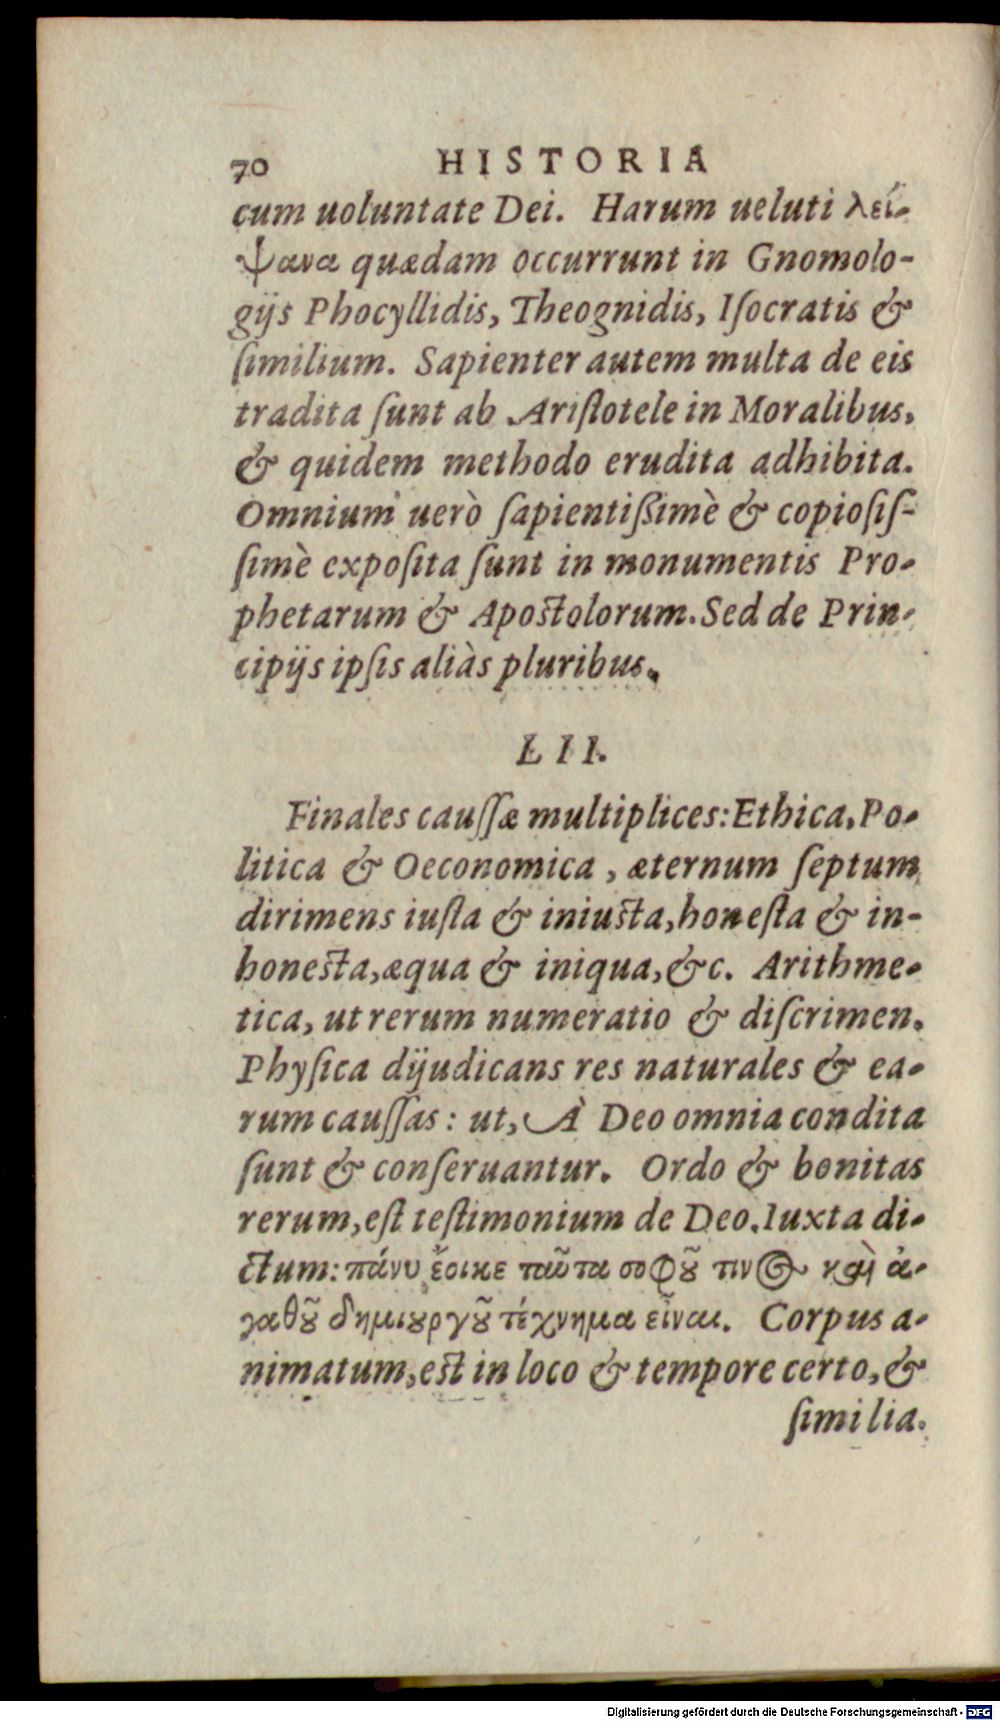 70 HISTORIA
cum uoluntate Dei. Harum ueluti λεί-
ψανα quædam occurrunt in Gnomolo-
gijs Phocyllidis, Theognidis, Iſocratis &
ſimilium. Sapienter autem multa de eis
tradita ſunt ab Ariſtotele in Moralibus,
& quidem methodo erudita adhibita.
Omnium uerò ſapientißimè & copioſiſ-
ſimè expoſita ſunt in monumentis Pro-
phetarum & Apoſtolorum. Sed de Prin-
cipijs ipſis aliàs pluribus.
LII.
Finales cauſſæ multiplices: Ethica, Po-
litica & Oeconomica, æternum ſeptum
dirimens iuſta & iniuſta, honeſta & in-
honeſta, æqua & iniqua, &c. Arithme-
tica, ut rerum numeratio & diſcrimen.
Phyſica dijudicans res naturales & ea-
rum cauſſas: ut, À Deo omnia condita
ſunt & conſeruantur. Ordo & bonitas
rerum, eſt teſtimonium de Deo. Iuxta di-
ctum: πάνυ ἔοικε ταῦτα σοφοῦ τινος καὶ ἀ-
γαθοῦ δημιουργοῦ τέχνημα εἶναι. Corpus a-
nimatum, eſt in loco & tempore certo, &
ſimilia.
Digitalisierung gefördert durch die Deutsche Forschungsgemeinschaft - DFG